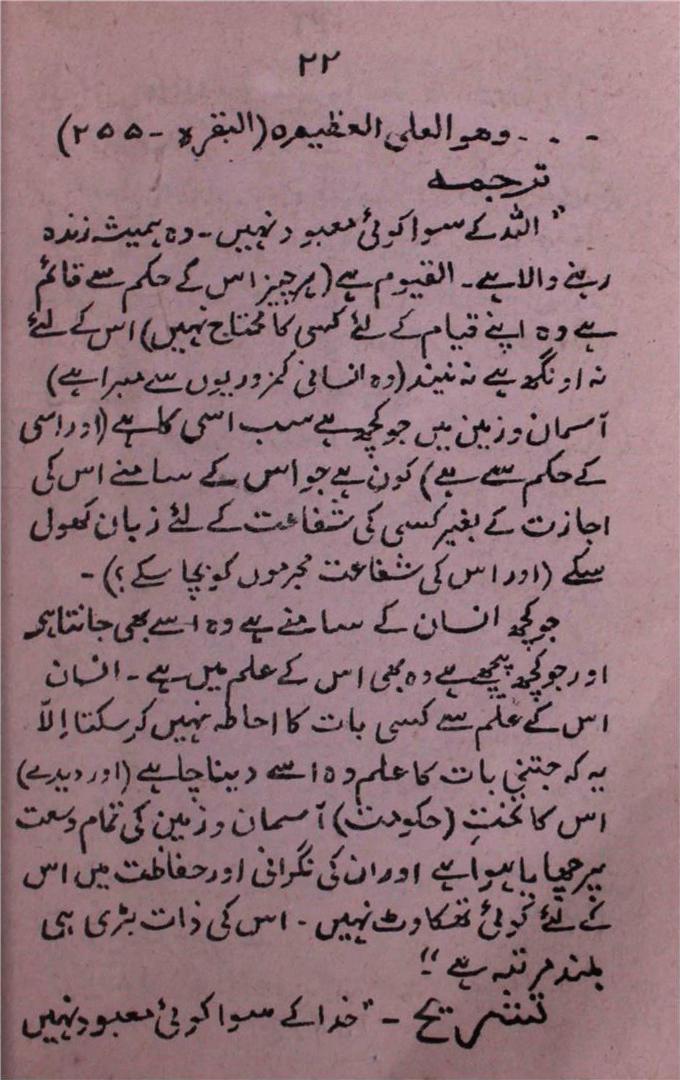 ۲۲
- - - وھوالعلی العظیمہ (البقرۃ - ۲۵۵)
ترجمہ
"اللہ کے سوا کوئی معبود نہیں۔ وہ ہمیشہ زندہ
رہنے والا ہے۔ القیوم ہے (ہر چیز اس کے حکم سے قائم
ہے وہ اپنے قیام کے لئے کسی کا محتاج نہیں) اس کے لئے
نہ اونگھ ہے نہ نیند (وہ انسانی کمزوریوں سے مبرا ہے)
آسمان و زمین میں جو کچھ ہے سب اسی کا ہے (اور اسی
کے حکم سے ہے) کون ہے جو اس کے سامنے اس کی
اجازت کے بغیر کسی کی شفاعت کے لئے زبان کھول
سکے (اور اس کی شفاعت مجرموں کو بچا سکے؟)۔
جو کچھ انسان کے سامنے ہے وہ اسے بھی جانتا ہے
اور جو کچھ پیچھے ہے وہ بھی اس کے علم میں ہے۔ انسان
اس کے علم سے کسی بات کا احاطہ نہیں کر سکتا اِلّا
یہ کہ جتنی بات کا علم وہ اسے دینا چاہے (اور دیدے)
اس کا تخت (حکومت) آسمان و زمین کی تمام وسعت
پر چھایا ہوا ہے اور ان کی نگرانی اور حفاظت میں اس
کے لئے کوئی تھکاوٹ نہیں۔ اس کی ذات بڑی ہی
بلند مرتبہ ہے"
تشریح - "خدا کے سوا کوئی معبود نہیں